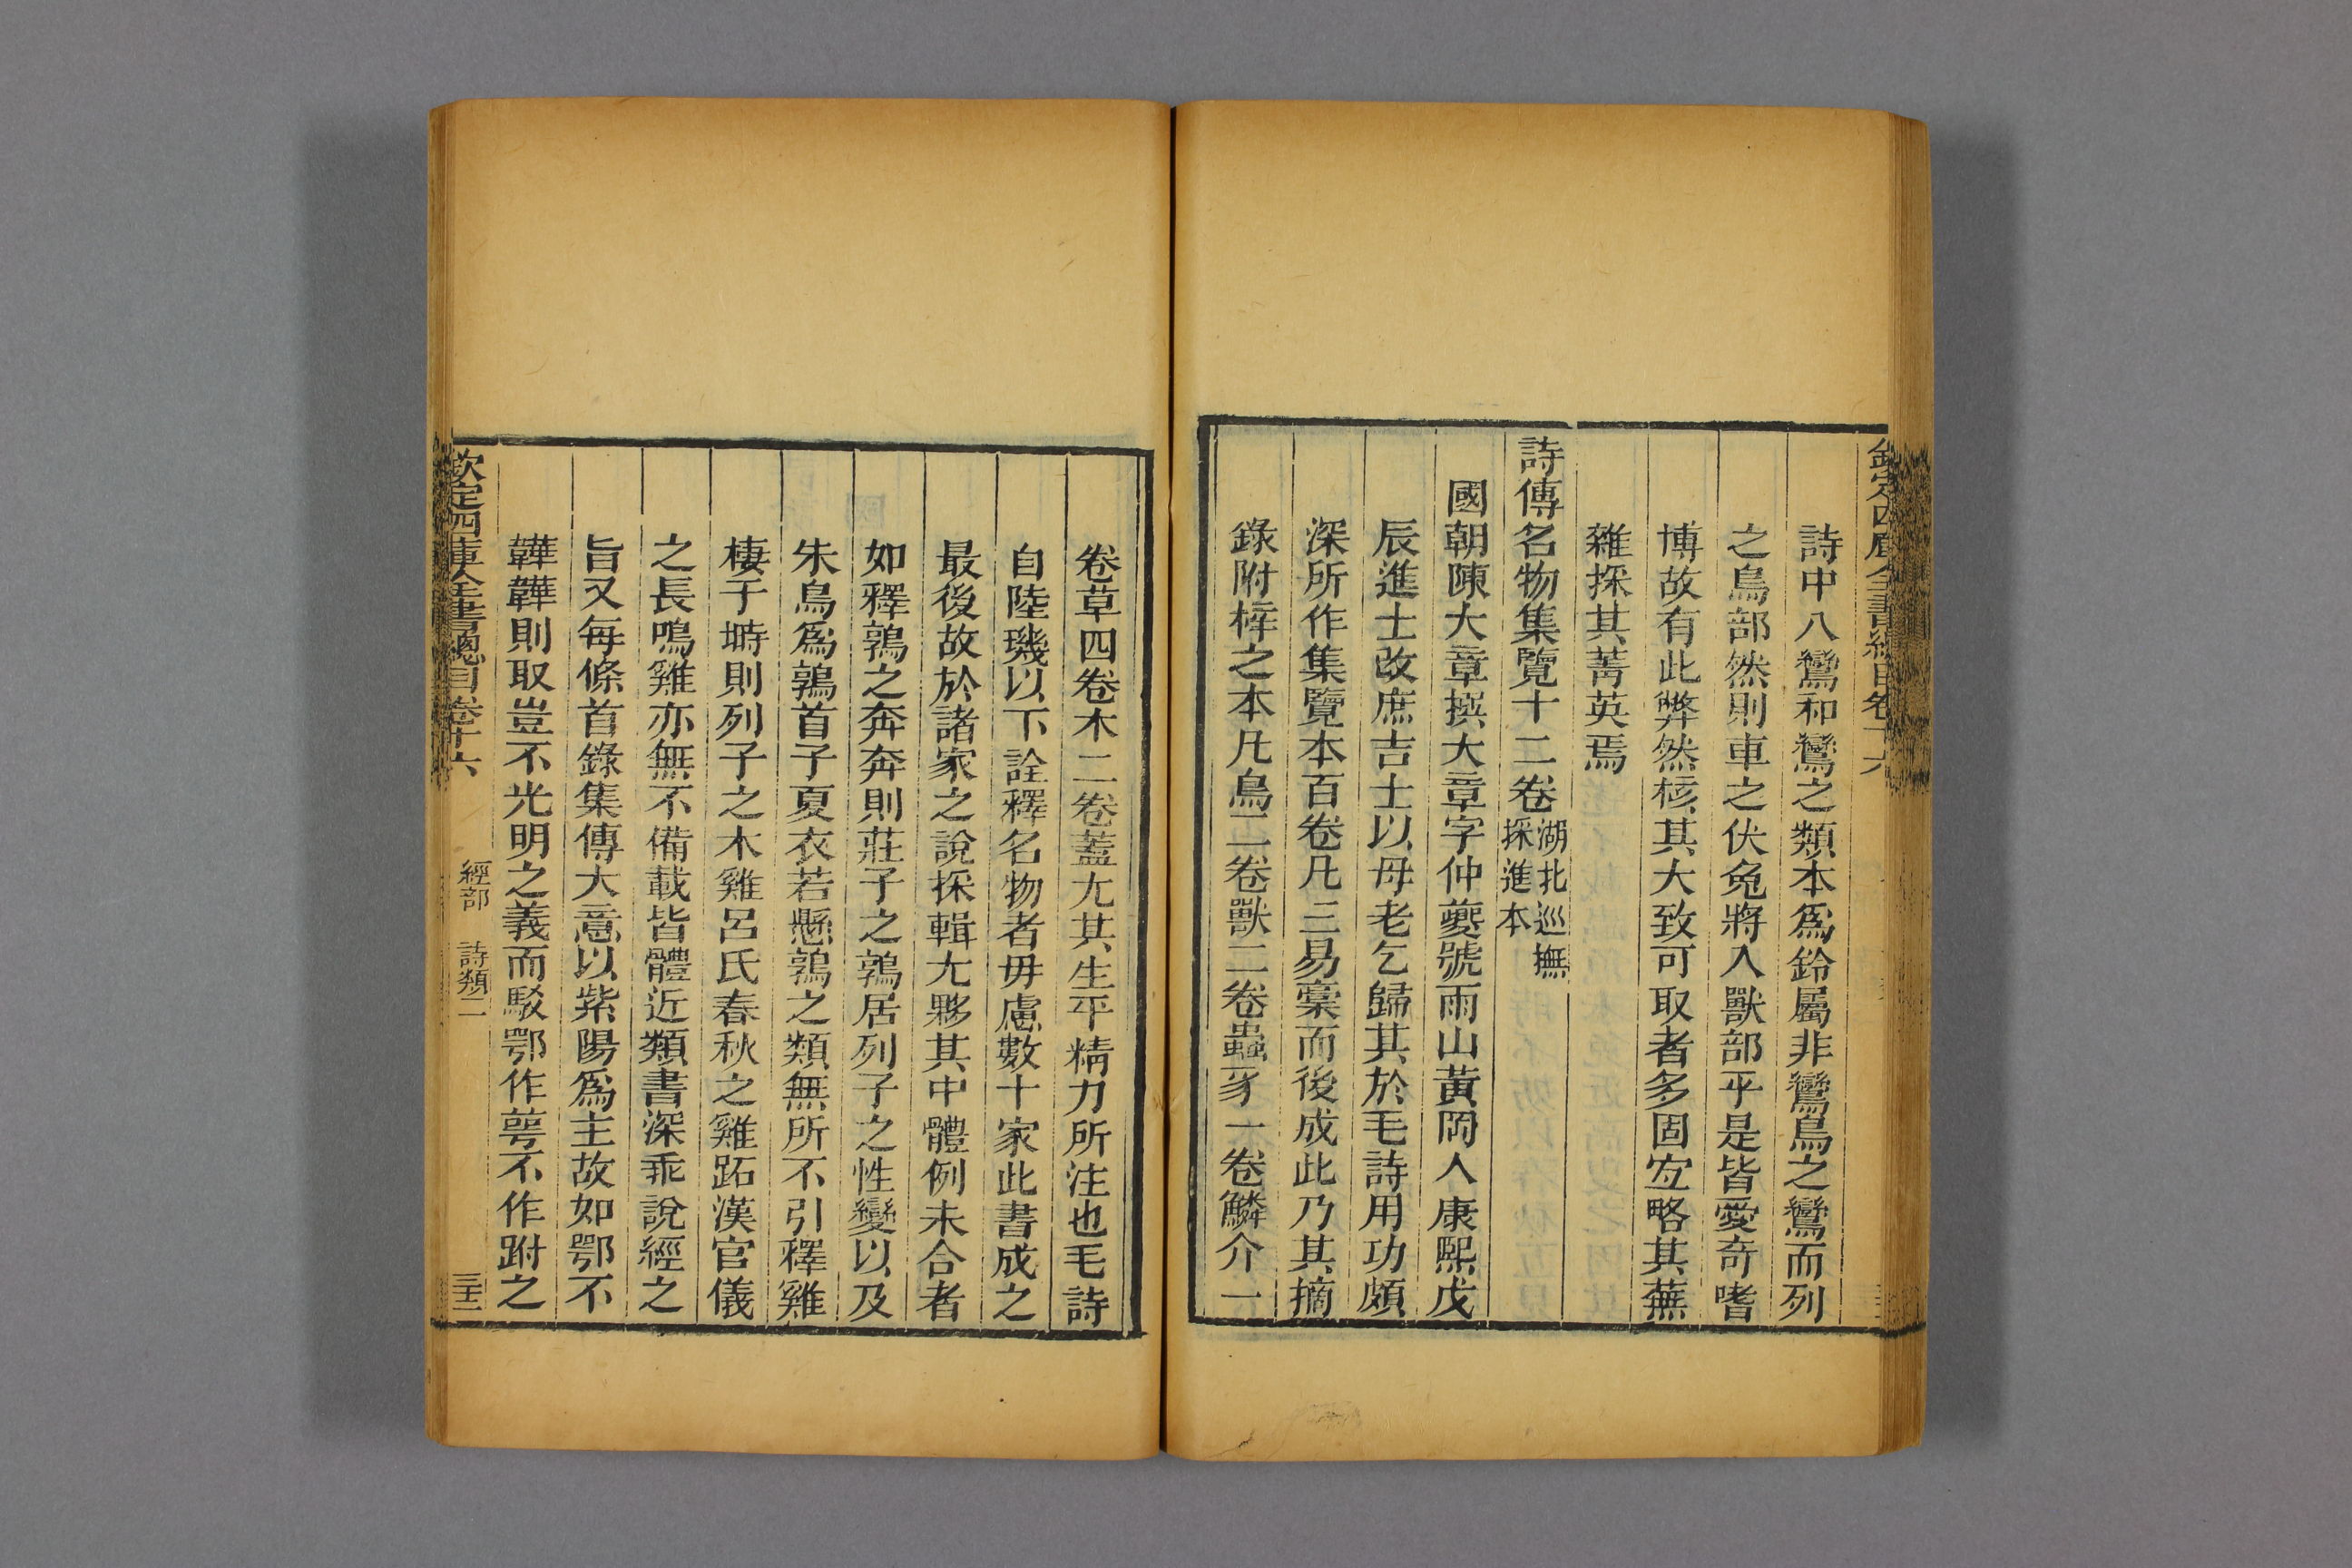 詩中八鸞和鸞之類本爲鈴屬非鸞鳥之鸞而列
之鳥部然則車之伏兔將入獸部乎是皆愛奇嗜
博故有此弊然核其大致可取者多固宜略其蕪
雜採其菁英焉
詩傳名物集覽十二卷湖北巡撫
採進本
國朝陳大章撰大章字仲夔號雨山黃岡人康熙戊
辰進士改庶吉士以母老乞歸其於毛詩用功頗
深所作集覽本百卷凡三易稾而後成此乃其摘
錄附梓之本凡鳥二卷獸二卷蟲豸一卷鱗介一
卷草四卷木二卷蓋尤其生平精力所注也毛詩
自陸璣以下詮釋名物者毋慮數十家此書成之
最後故於諸家之說採輯尤夥其中體例未合者
如釋鶉之奔奔則莊子之鶉居列子之性變以及
朱鳥爲鶉首子夏衣若懸鶉之類無所不引釋雞
棲于塒則列子之木雞呂氏春秋之雞跖漢官儀
之長鳴雞亦無不備載皆體近類書深乖說經之
旨又每條首錄集傳大意以紫陽爲主故如鄂不
韡韡則取豈不光明之義而駁鄂作萼不作跗之
欽定四庫全書總目卷十六 經部 詩類二